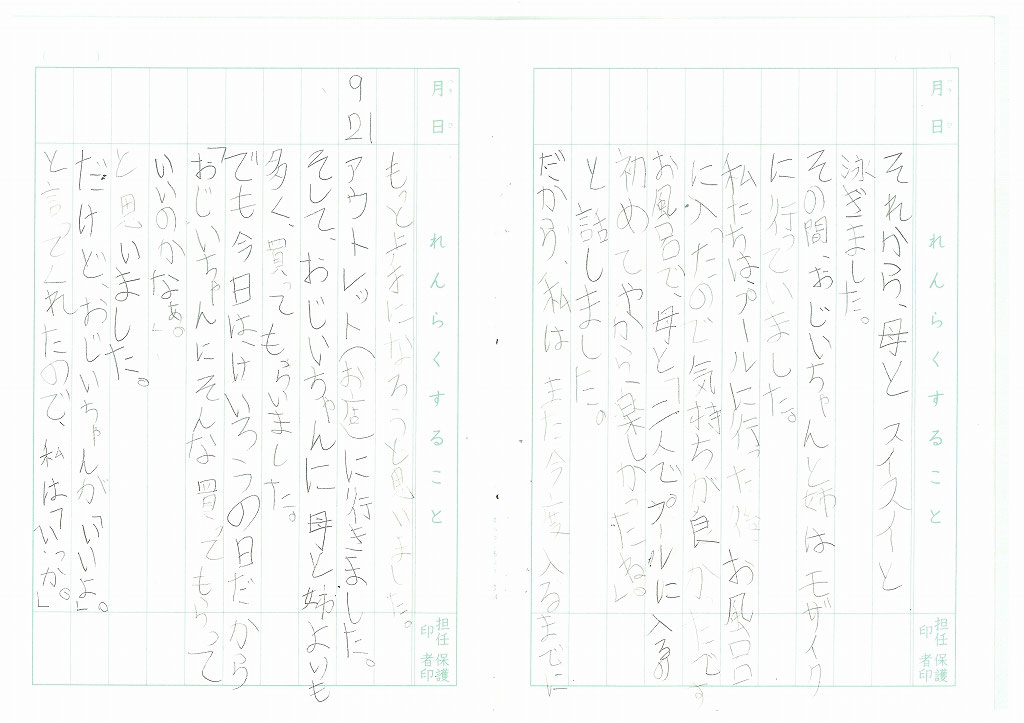 月 日
れんらくすること
担任印 保護者印
それから、母とスイスイと
泳ぎました。
その間、おじいちゃんと姉はモザイク
に行っていました。
私たちは、プールに行った後 お風呂
に入ったので気持ちが良かったです
お風呂で、母と「二人でプールに入るの
初めてやから楽しかったね。」
と話しました。
だから、私は また今度入るまでに
月 日
れんらくすること
担任印 保護者印
もっと上手になろうと思いました。
9 21 アウトレット(お店)に行きました。
そして、おじいちゃんに母と姉よりも
多く、買ってもらいました。
でも今日はけいろうの日だから
「おじいちゃんにそんな買ってもらって
いいのかなぁ。」
と思いました。
だけど、おじいちゃんが「いいよ」。
と言ってくれたので、私は「いっか。」